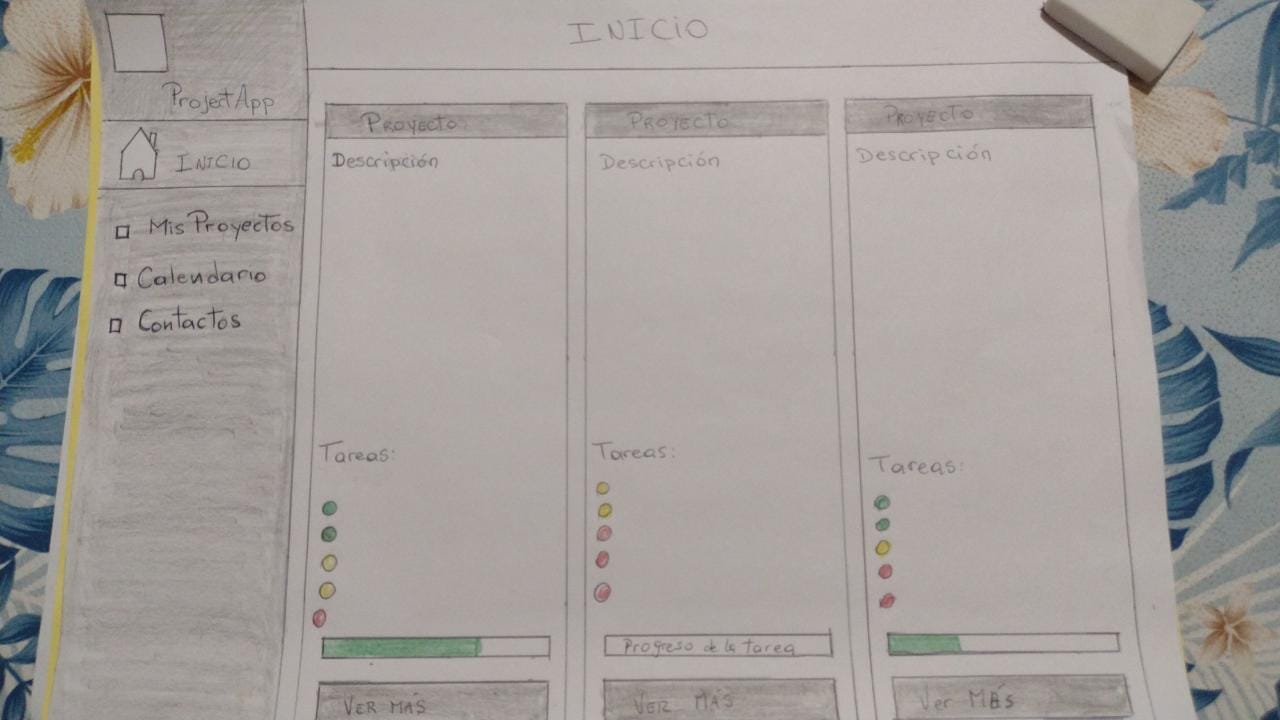 INICIO
ProjectApp
INICIO
Mis Proyectos
Calendario
Contactos
PROYECTO
Descripción
Tareas:
VER MÁS
PROYECTO
Descripción
Tareas:
Progreso de la tarea
VER MÁS
PROYECTO
Descripción
Tareas:
Ver MÁS